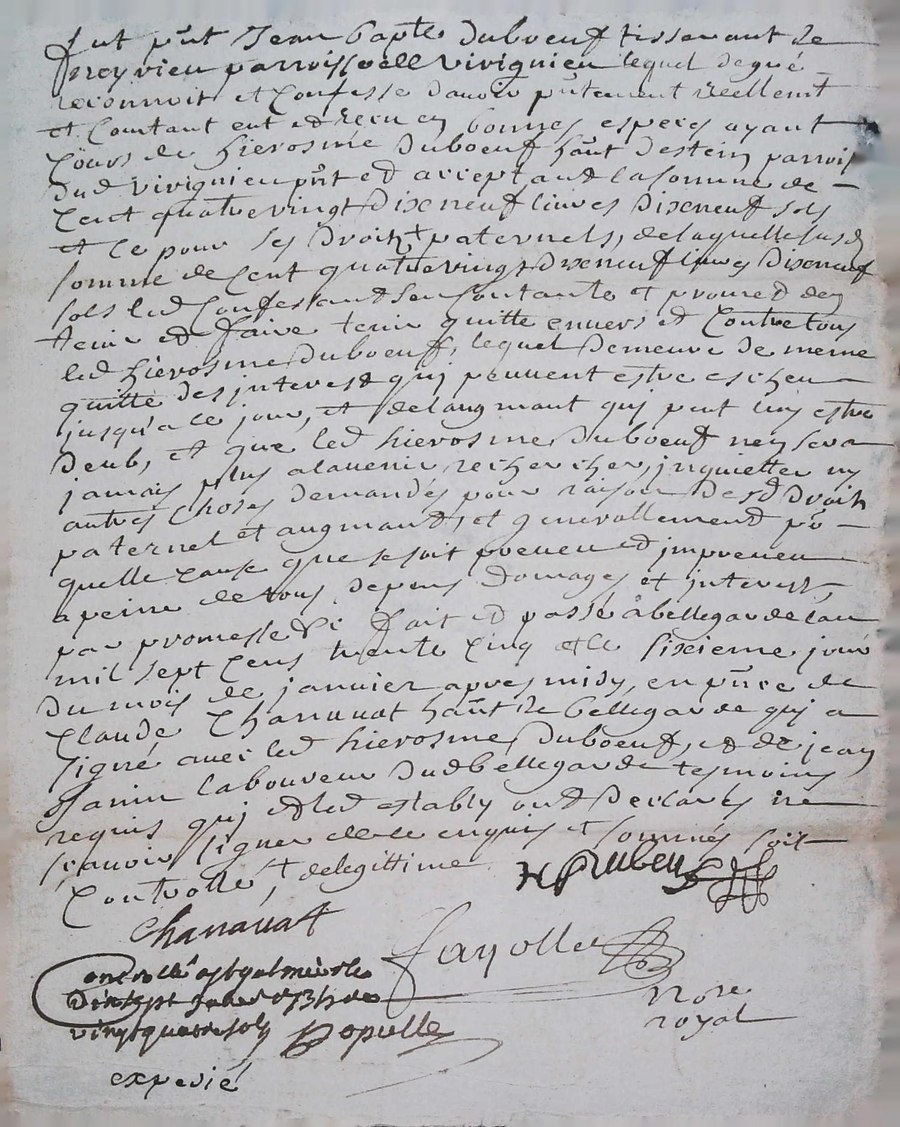 fut p̃nt Jean bapte duboeuf tisserant de
meyvieu parroisse de vivignieu lequel de gré
reconnoit et Confesse d'avoir p̃ntement réellemt
et Comtant eut et recu en bonnes especes ayant
Cours de hierosme duboeuf haũt destein parrois
dud vivignieu p̃nt et acceptant la somme de
Cent quatre vingt dixneuf livres dixneuf sols
et ce pour ses droits paternels, de laquelle susd
somme de Cent quatrevingt dixneuf livres dixneuf
sols led Confessant s'en contante et promet d'en
tenir et faire tenir quitte envers et Contre tous
led hierosme duboeuf, lequel demeure de meme
quitte des interest qui peuvent estre escheu
jusqu'a ce jour, et de l'augmant qui peut luy estre
deub, et que led hierosme duboeuf n'en sera
jamais plus a l'avenir rechercher, inquietter ny
autres choses demandés pour raison desd droits
paternel et augmant, et generallement põ
quelle cause que se soit preveu et impreveu
a peine de tous depens domages et interest,
par promesse &c fait et passé à bellegarde l'an
mil sept cens trente cinq et le sixieme jour
du mois de janvier apres midy, en p̃nce de
Claude Chanavat haũt de bellegarde qui a
signé avec led hierosme duboeuf, et de jean
Janin laboureur dud bellegarde tesmoins
requis qui et led estably ont declarés ne
sçavoir signer de ce enquis et sommés soit
Controllé et de legittime
h Dubeuf
Chanavat
fayolle
Controllé a st galmier le
dixsept janvier 1735 recu
vingt quatre sols
nore
royal
expedié